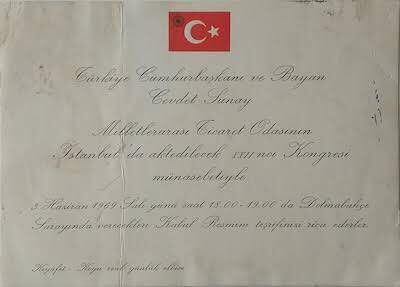 Türkiye Cumhurbaşkanı ve Bayan
Cevdet Sunay
Milletlerarası Ticaret Odasının
İstanbul'da aktedilecek XXII nci Kongresi
münasebetiyle
3 Haziran 1969 Salı günü saat 18.00-19.00 da Dolmabahçe
Sarayında verecekleri Kabul Resmini teşrifinizi rica ederler.
Kıyafet : Koyu renk günlük elbise